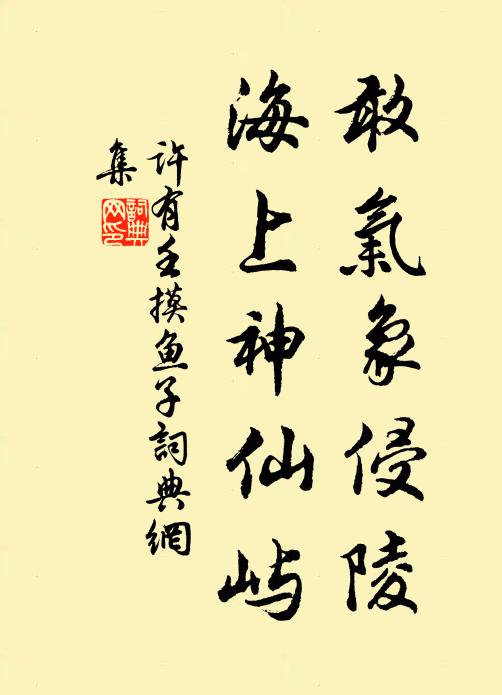 敢氣象侵陵
海上神仙屿
許有壬摸鱼子詞典網
集
詞典
网印